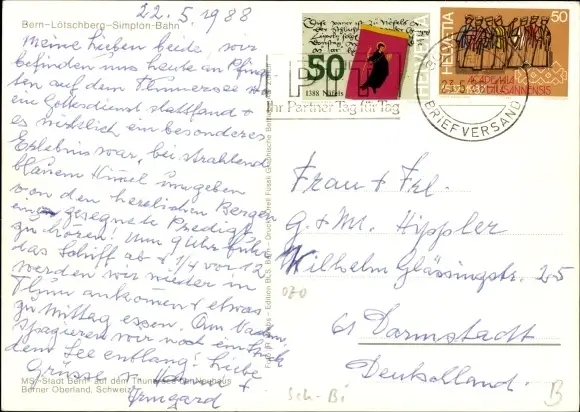 Bern–Lötschberg–Simplon-Bahn
22.5.1988
Meine lieben beide, wir
befinden uns heute an Pfings-
ten auf dem Thunersee wo
ein Gottesdienst stattfand +
es wirklich ein besonderes
Erlebnis war, bei strahlend
blauem Himmel umgeben
von den herrlichen Bergen
eine gesegnete Predigt
zu hören! Um 9 Uhr fuhr
das Schiff ab + 1/4 vor 12
werden wir wieder in
Thun ankommen + etwas
zu Mittag essen. Am
spazieren wir noch ein Stück
dem See entlang! Liebe
Grüsse v. +
Irmgard
MS «Stadt Bern» auf dem Thunersee bei Neuhaus
Berner Oberland, Schweiz
Edition BLS Bern
50
1388 Näfels
HELVETIA
HELVETIA
50
ACADEMIA
LAUSANNENSIS
Ihr Partner Tag für Tag
BRIEFVERSAND
Frau + Frl.
G. + M. Hippler
Wilhelm Glässingstr. 25
61 Darmstadt
Deutschland.
Sch-Bi
B